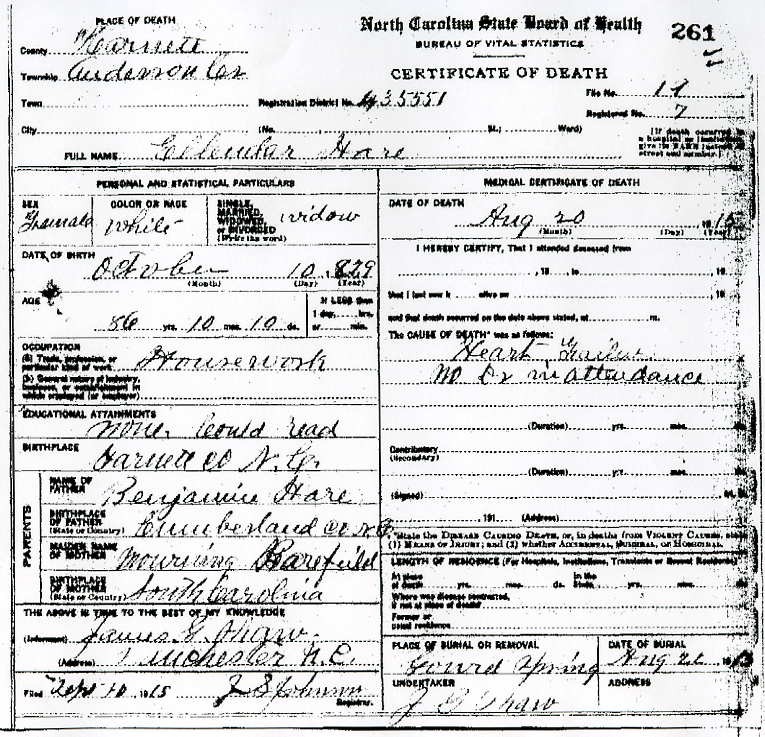 PLACE OF DEATH
North Carolina State Board of Health
261
BUREAU OF VITAL STATISTICS
County Harnett
Township Anderson Cr
CERTIFICATE OF DEATH
Town
Registration District No. 435551
File No. 11
Registered No. 7
City
(No. , St.; Ward)
[If death occurred in a hospital or institution, give its NAME instead of street and number.]
FULL NAME Ellender Hare
PERSONAL AND STATISTICAL PARTICULARS
MEDICAL CERTIFICATE OF DEATH
SEX Femald
COLOR OR RACE White
SINGLE, MARRIED, WIDOWED, or DIVORCED (Write the word) widow
DATE OF DEATH Aug 20, 1915
(Month) (Day) (Year)
DATE OF BIRTH October 10, 829
(Month) (Day) (Year)
I HEREBY CERTIFY, That I attended deceased from
, 19 to , 19
that I last saw h alive on , 19
and that death occurred on the date above stated, at m.
AGE 86 yrs. 10 mos. 10 ds.
If LESS than 1 day, hrs. or min.
The CAUSE OF DEATH* was as follows:
Heart
no Dr in attendance
OCCUPATION
(a) Trade, profession, or particular kind of work Housework
(b) General nature of industry, business, or establishment in which employed (or employer)
EDUCATIONAL ATTAINMENTS
none, Could read
(Duration) yrs. mos.
BIRTHPLACE
Harnett co N.C.
Contributory (Secondary)
(Duration) yrs. mos.
PARENTS
NAME OF FATHER Benjamin Hare
BIRTHPLACE OF FATHER (State or Country) Cumberland co N C
MAIDEN NAME OF MOTHER Mourning Barefield
BIRTHPLACE OF MOTHER (State or Country) South Carolina
(Signed) M. D.
191 (Address)
*State the DISEASE CAUSING DEATH, or, in deaths from VIOLENT CAUSES, state (1) MEANS OF INJURY; and (2) whether ACCIDENTAL, SUICIDAL, or HOMICIDAL.
LENGTH OF RESIDENCE (For Hospitals, Institutions, Transients or Recent Residents)
At place of death yrs. mos. ds. In the State, yrs. mos.
Where was disease contracted, if not at place of death?
Former or usual residence
THE ABOVE IS TRUE TO THE BEST OF MY KNOWLEDGE
(Informant) James Shaw
(Address) N.C.
PLACE OF BURIAL OR REMOVAL
Gourd Spring
DATE OF BURIAL
Aug 22
Filed Sept 10 1915 J S Johnson
Registrar.
UNDERTAKER
J Shaw
ADDRESS